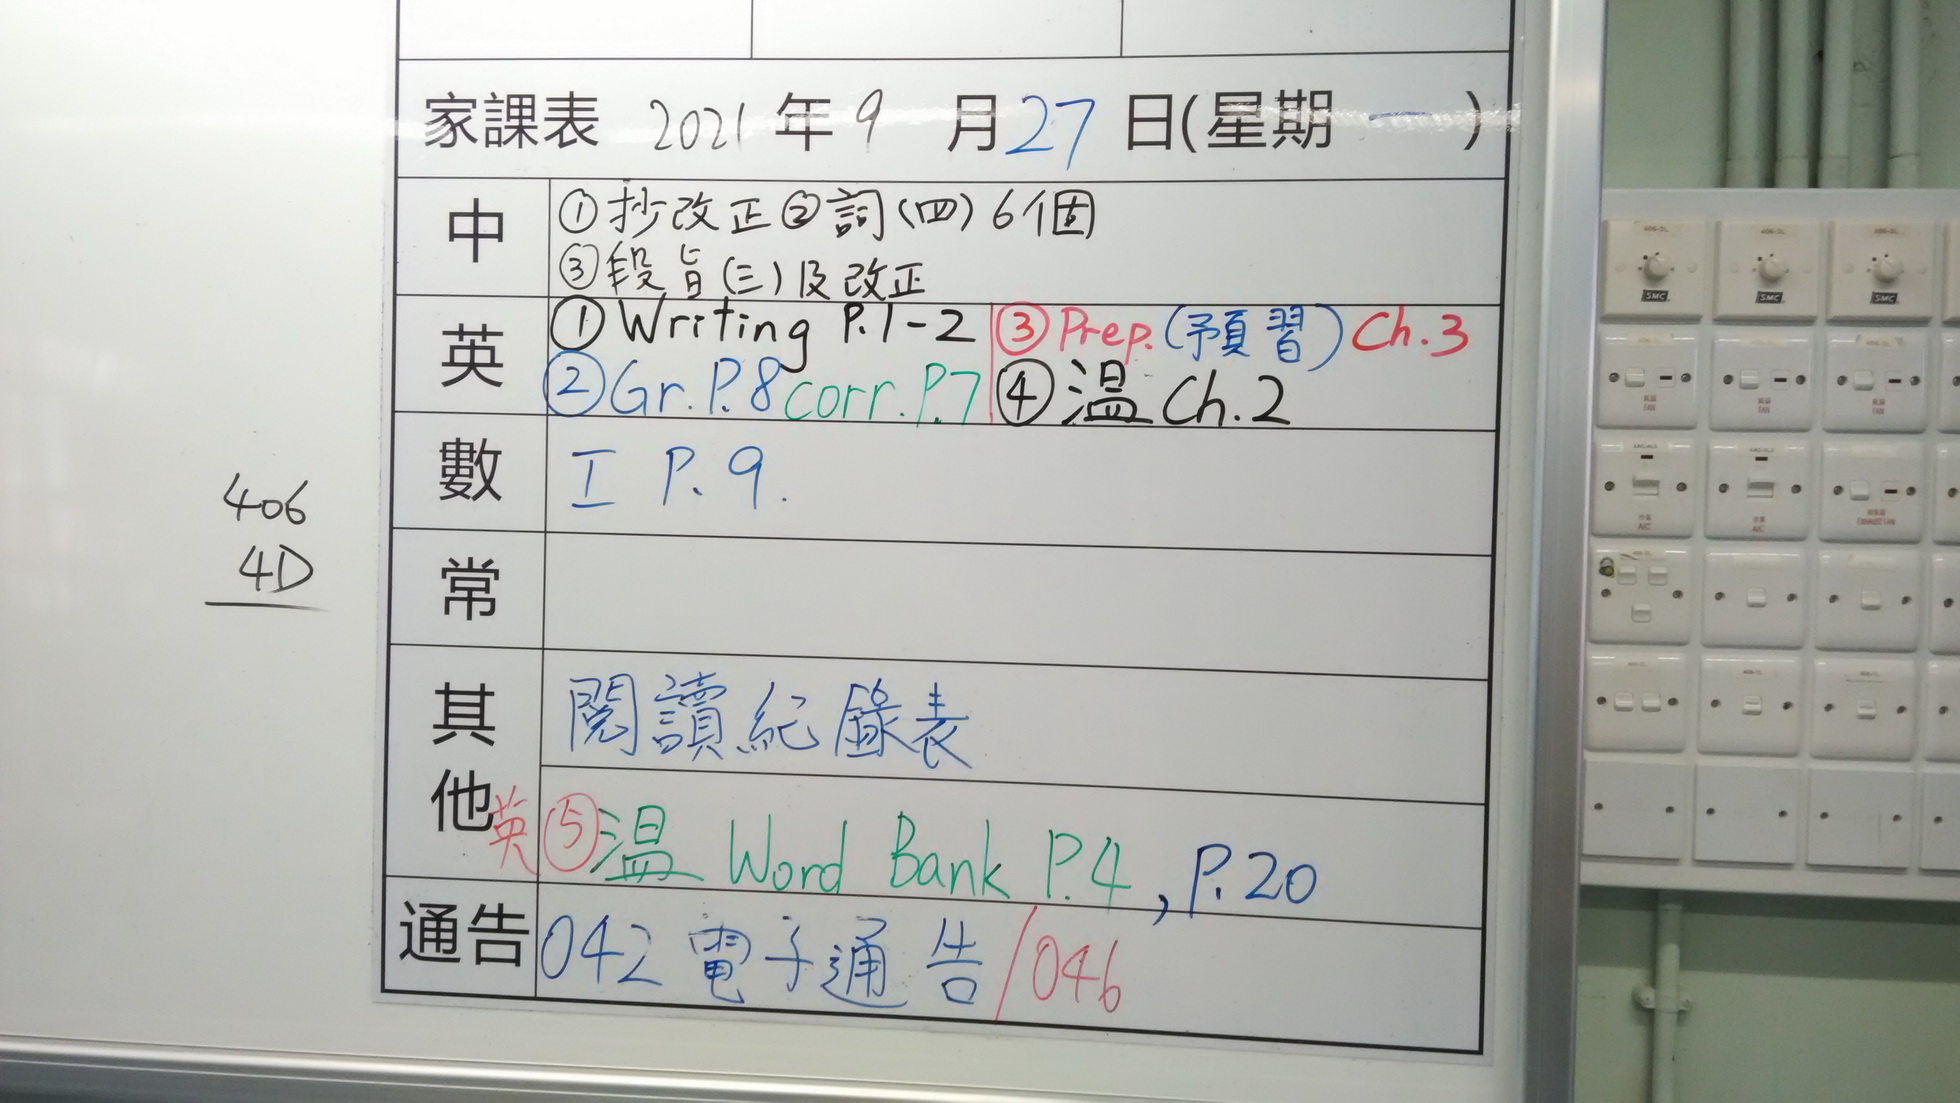 家課表 2021 年 9 月 27 日(星期 一 )
中
①抄改正②詞(四)6個
③段旨(三)及改正
英
①Writing P.1-2 ③Prep.(預習)Ch.3
②Gr.P.8 corr.P.7 ④溫 Ch.2
數
工 P.9.
常
其他
閱讀紀錄表
英⑤溫 Word Bank P.4, P.20
通告
042 電子通告/046
406
4D
SMC SMC SMC
FAN FAN FAN
A/C A/C EXHAUST FAN